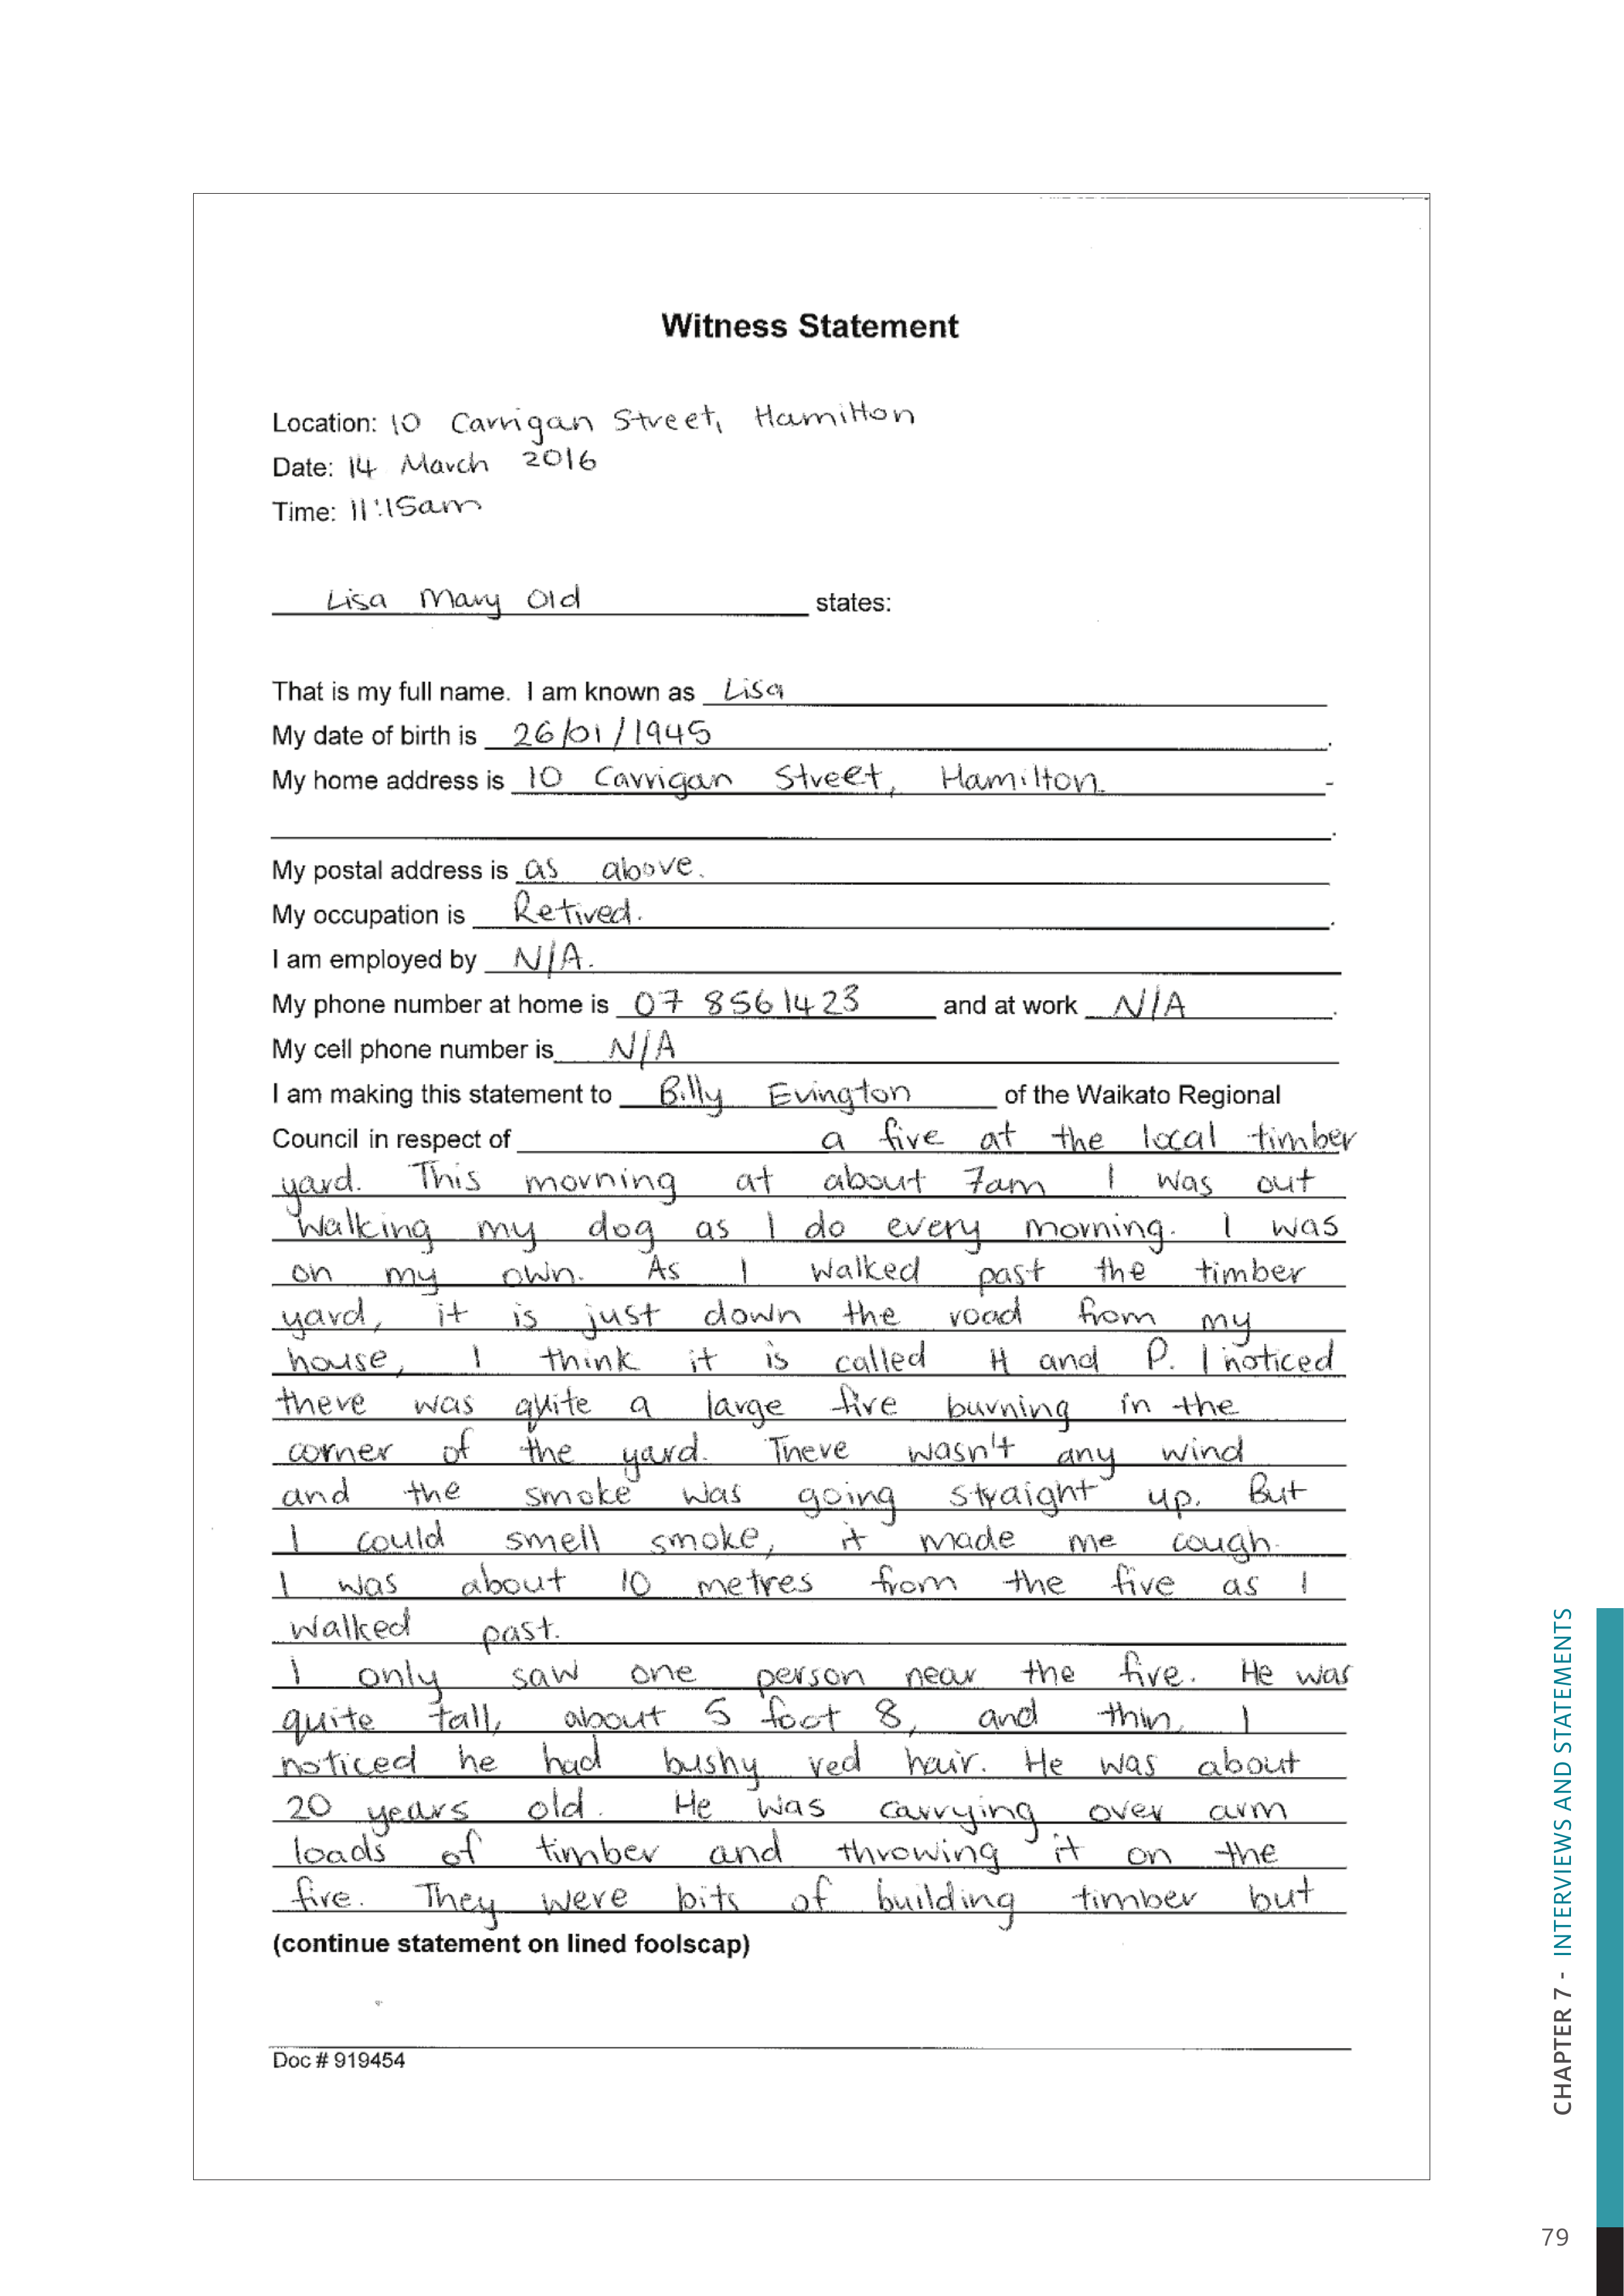 Witness Statement
Location: 10 Carrigan Street, Hamilton
Date: 14 March 2016
Time: 11:15am
Lisa Mary Old states:
That is my full name. I am known as Lisa
My date of birth is 26/01/1945.
My home address is 10 Carrigan Street, Hamilton
My postal address is as above.
My occupation is Retired.
I am employed by N/A.
My phone number at home is 07 8561423 and at work N/A.
My cell phone number is N/A
I am making this statement to Billy Evington of the Waikato Regional
Council in respect of a fire at the local timber
yard. This morning at about 7am I was out
walking my dog as I do every morning. I was
on my own. As I walked past the timber
yard, it is just down the road from my
house, I think it is called H and P. I noticed
there was quite a large fire burning in the
corner of the yard. There wasn't any wind
and the smoke was going straight up. But
I could smell smoke, it made me cough.
I was about 10 metres from the fire as I
walked past.
I only saw one person near the fire. He was
quite tall, about 5 foot 8, and thin. I
noticed he had bushy red hair. He was about
20 years old. He was carrying over arm
loads of timber and throwing it on the
fire. They were bits of building timber but
(continue statement on lined foolscap)
Doc # 919454
CHAPTER 7 - INTERVIEWS AND STATEMENTS
79